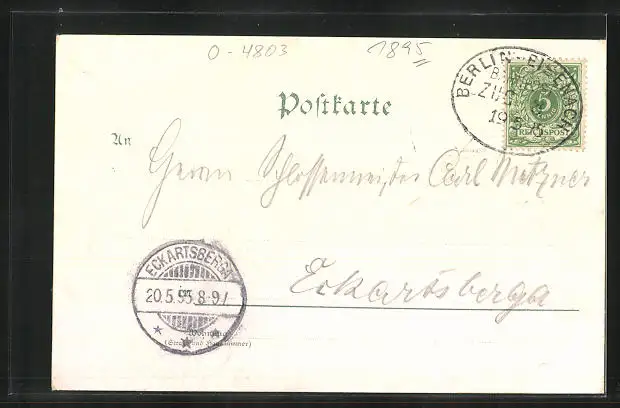 0-4803 1895
BERLIN-EISENACH
ZUG
19 5
5
REICHSPOST
Postkarte
An
Herrn Schlossermeister Carl Metzner
ECKARTSBERGA
20.5.95.8-9V
Eckartsberga
in
Wohnung
(Straße und Hausnummer)